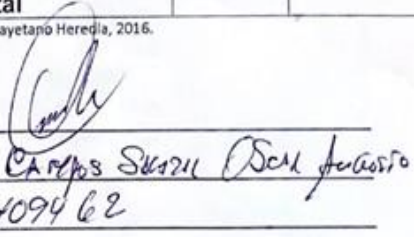 tal
ayetano Heredia, 2016.
Campos Oscar Augusto
409462